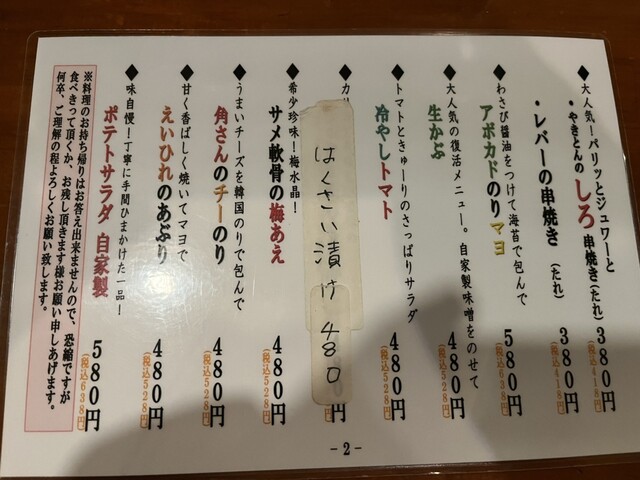 ◆大人気!パリッとジュワーと
・やきとんのしろ串焼き(たれ) 380円
(税込418円)
・レバーの串焼き(たれ) 380円
(税込418円)
◆わさび醤油をつけて海苔で包んで
アボカドのりマヨ 580円
(税込638円)
◆大人気の復活メニュー。自家製味噌をのせて
生かぶ 480円
(税込528円)
◆トマトときゅーりのさっぱりサラダ
冷やしトマト 480円
(税込528円)
◆カリ
はくさい漬け 480
円
◆希少珍味!梅水晶!
サメ軟骨の梅あえ 480円
(税込528円)
◆うまいチーズを韓国のりで包んで
角さんのチーのり 480円
(税込528円)
◆甘く香ばしく焼いてマヨで
えいひれのあぶり 480円
(税込528円)
◆味自慢!丁寧に手間ひまかけた一品!
ポテトサラダ 自家製 580円
(税込638円)
※料理のお持ち帰りはお答え出来ませんので、恐縮ですが
食べきって頂くか、お残し頂きます様お願い申しあげます。
何卒、ご理解の程よろしくお願い致します。
-2-